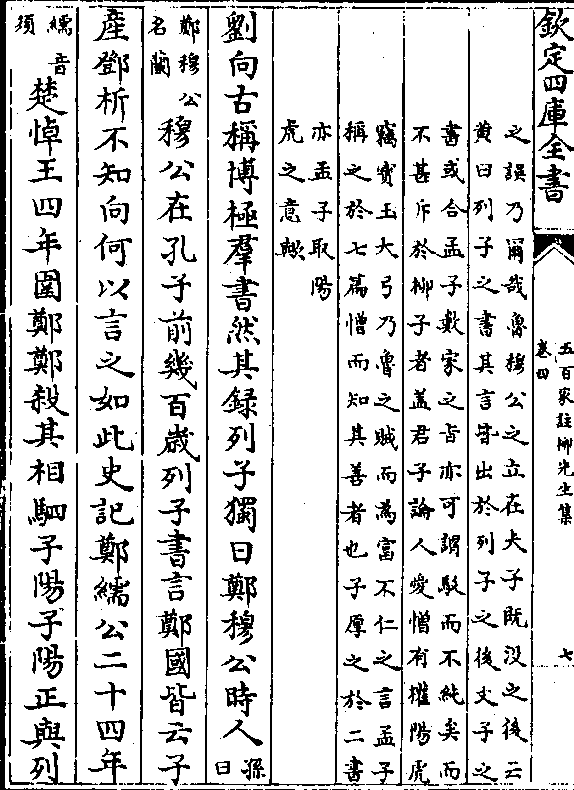 欽定四庫全書
五百家註柳先生集
卷四
七
之誤乃爾哉魯穆公之立在夫子既没之後云
黄曰列子之書其言皆出於列子之後文子之
書或合孟子數家之旨亦可謂駁而不純矣而
不甚斥於柳子者蓋君子論人愛憎有權陽虎
竊寳玉大弓乃魯之賊而為富不仁之言孟子
稱之於七篇憎而知其善者也子厚之於二書
亦孟子取陽
虎之意歟
劉向古稱博極羣書然其録列子獨曰鄭穆公時人
孫曰
鄭穆公
名蘭
穆公在孔子前幾百歲列子書言鄭國皆云子
産鄧析不知向何以言之如此史記鄭繻公二十四年
繻音
須
楚悼王四年圍鄭鄭殺其相駟子陽子陽正與列